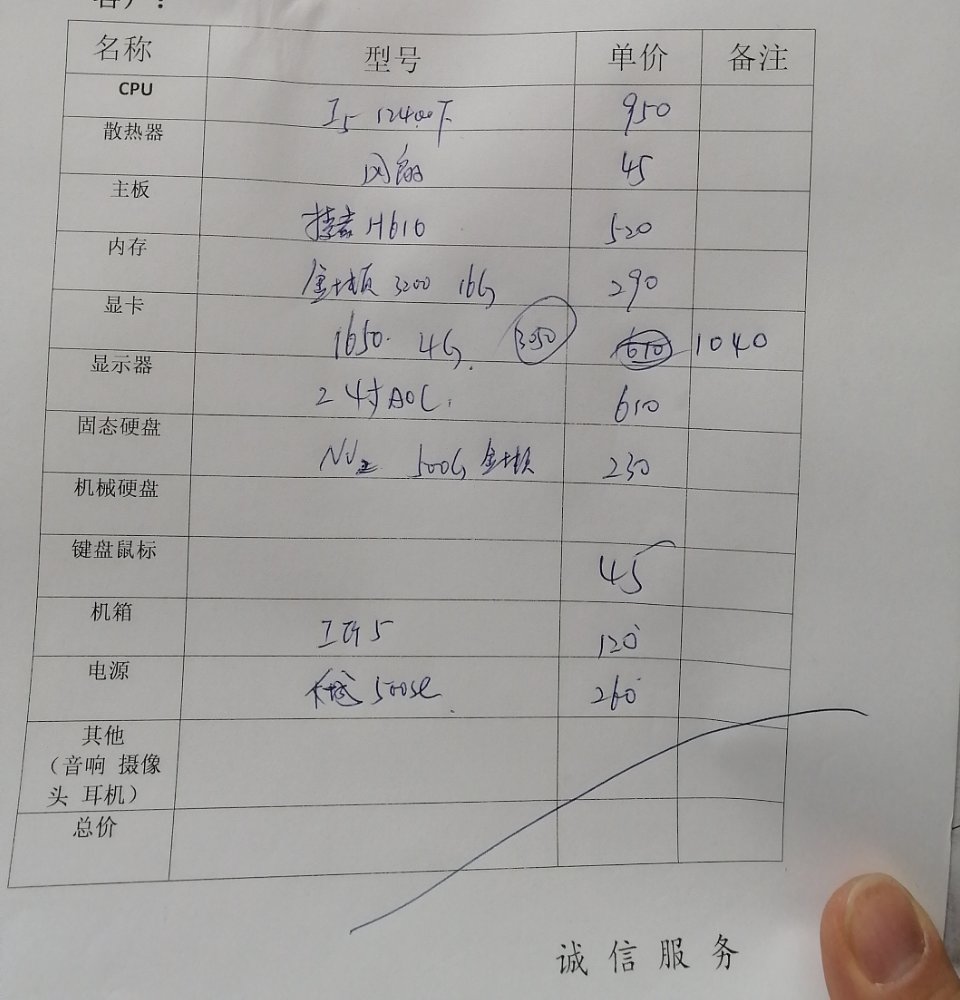 客户：
名称 型号 单价 备注
CPU I5 12400F 950
散热器 风扇 45
主板 H610 520
内存 金士顿 3200 16G 290
显卡 1650. 4G 3050 610 1040
显示器 24寸AOC 610
固态硬盘 NV2 500G 金士顿 230
机械硬盘
键盘鼠标 45
机箱 120
电源 长城 500 260
其他
（音响 摄像
头 耳机）
总价
诚信服务